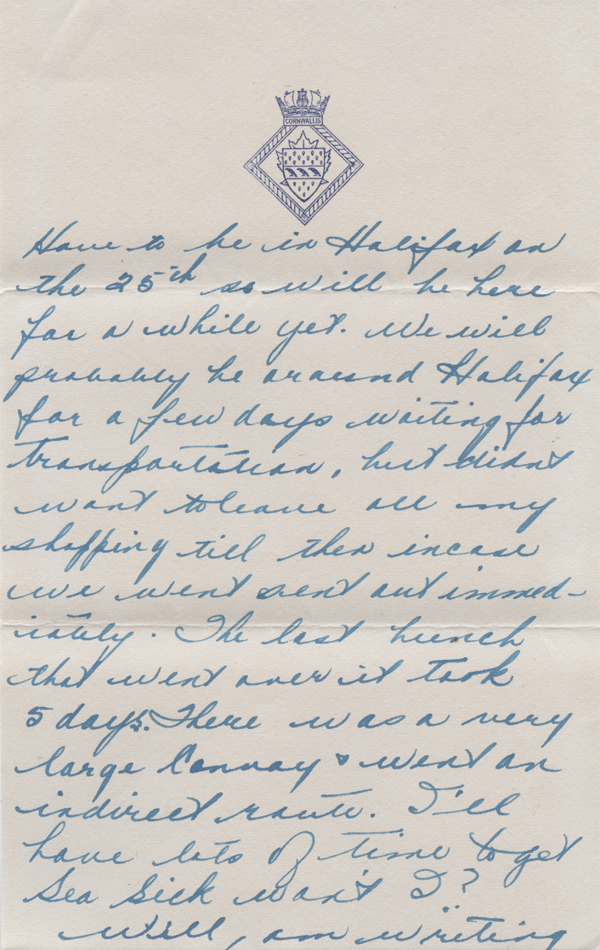 CORNWALLIS
Have to be in Halifax on
the 25th so will be here
for a while yet. We will
probably be around Halifax
for a few days waiting for
transportation, but didnt
want to leave all my
shopping till then incase
we went sent out immed-
iately. The last bunch
that went over it took
5 days. There was a very
large Convoy & went an
indirect route. I'll
have lots of time to get
Sea Sick won't I?
Well, am writing